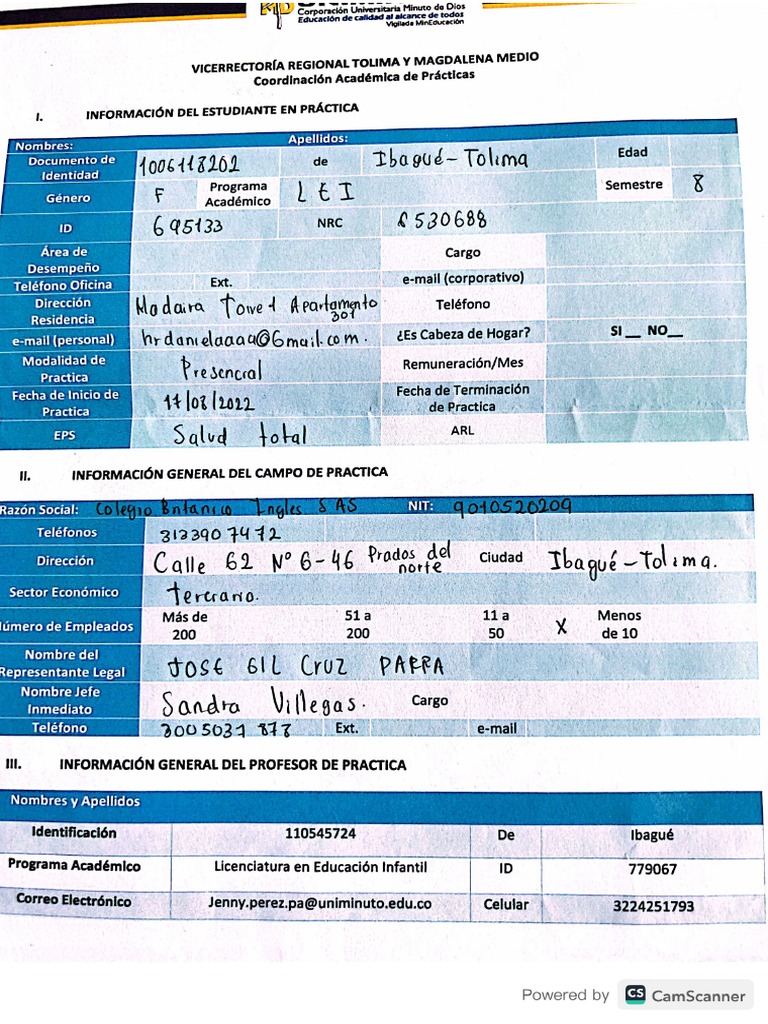 Corporación Universitaria Minuto de Dios
Educación de calidad al alcance de todos
Vigilada MinEducación
VICERRECTORÍA REGIONAL TOLIMA Y MAGDALENA MEDIO
Coordinación Académica de Prácticas
I. INFORMACIÓN DEL ESTUDIANTE EN PRÁCTICA
Nombres: Apellidos:
Documento de Identidad 1006118202 de Ibagué-Tolima Edad
Género F Programa Académico LEI Semestre 8
ID 695133 NRC 530688
Área de Desempeño Cargo
Teléfono Oficina Ext. e-mail (corporativo)
Dirección Residencia Madaira Torre 1 Apartamento 301 Teléfono
e-mail (personal) hrdanielaaaa@Gmail.com. ¿Es Cabeza de Hogar? SI __ NO__
Modalidad de Practica Presencial Remuneración/Mes
Fecha de Inicio de Practica /08/2022 Fecha de Terminación de Practica
EPS Salud total ARL
II. INFORMACIÓN GENERAL DEL CAMPO DE PRACTICA
Razón Social: Colegio Britanico Ingles SAS NIT: 9010520209
Teléfonos 3133907472
Dirección Calle 62 Nº 6-46 Prados del norte Ciudad Ibagué-Tolima.
Sector Económico terciario.
Número de Empleados Más de 200 51 a 200 11 a 50 X Menos de 10
Nombre del Representante Legal JOSE GIL Cruz PARRA
Nombre Jefe Inmediato Sandra Villegas. Cargo
Teléfono 3005031 873 Ext. e-mail
III. INFORMACIÓN GENERAL DEL PROFESOR DE PRACTICA
Nombres y Apellidos
Identificación 110545724 De Ibagué
Programa Académico Licenciatura en Educación Infantil ID 779067
Correo Electrónico Jenny.perez.pa@uniminuto.edu.co Celular 3224251793
Powered by CS CamScanner